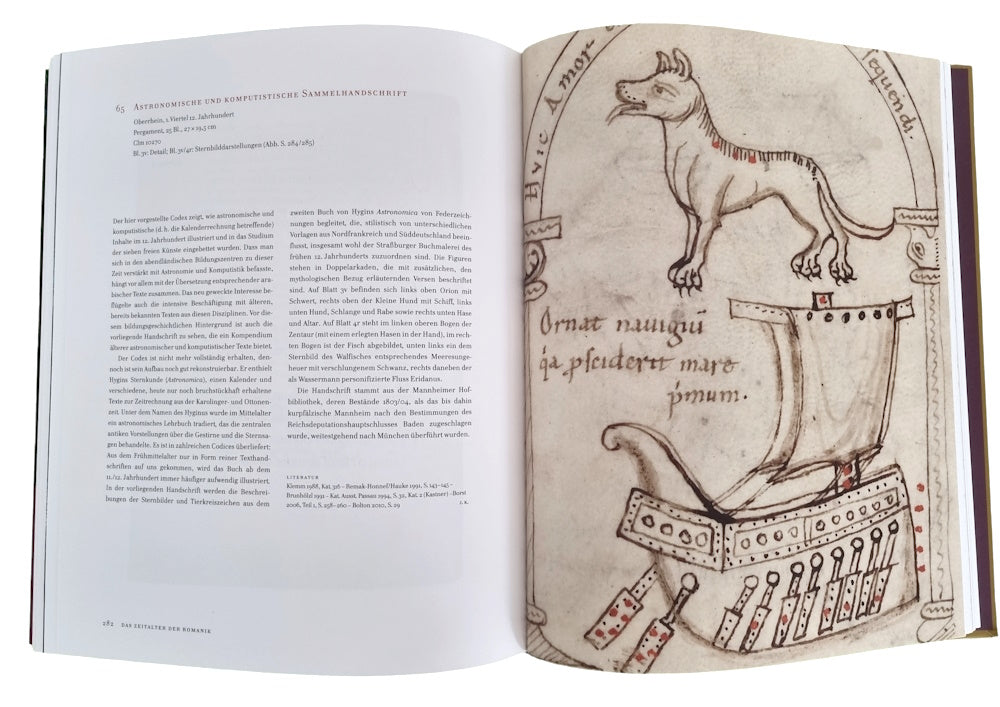 65 Astronomische und komputistische Sammelhandschrift
Oberrhein, 1. Viertel 12. Jahrhundert
Pergament, 25 Bl., 27 × 19,5 cm
Clm 10270
Bl. 3v: Detail; Bl. 3v/4r: Sternbilddarstellungen (Abb. S. 284/285)
Der hier vorgestellte Codex zeigt, wie astronomische und
komputistische (d. h. die Kalenderrechnung betreffende)
Inhalte im 12. Jahrhundert illustriert und in das Studium
der sieben freien Künste eingebettet wurden. Dass man
sich in den abendländischen Bildungszentren zu dieser
Zeit verstärkt mit Astronomie und Komputistik befasste,
hängt vor allem mit der Übersetzung entsprechender ara-
bischer Texte zusammen. Das neu geweckte Interesse be-
flügelte auch die intensive Beschäftigung mit älteren,
bereits bekannten Texten aus diesen Disziplinen. Vor die-
sem bildungsgeschichtlichen Hintergrund ist auch die
vorliegende Handschrift zu sehen, die ein Kompendium
älterer astronomischer und komputistischer Texte bietet.
Der Codex ist nicht mehr vollständig erhalten, den-
noch ist sein Aufbau noch gut rekonstruierbar. Er enthielt
Hygins Sternkunde (Astronomica), einen Kalender und
verschiedene, heute nur noch bruchstückhaft erhaltene
Texte zur Zeitrechnung aus der Karolinger- und Ottonen-
zeit. Unter dem Namen des Hyginus wurde im Mittelalter
ein astronomisches Lehrbuch tradiert, das die zentralen
antiken Vorstellungen über die Gestirne und die Sternsa-
gen behandelte. Es ist in zahlreichen Codices überliefert:
Aus dem Frühmittelalter nur in Form reiner Texthand-
schriften auf uns gekommen, wird das Buch ab dem
11./12. Jahrhundert immer häufiger aufwendig illustriert.
In der vorliegenden Handschrift werden die Beschrei-
bungen der Sternbilder und Tierkreiszeichen aus dem
zweiten Buch von Hygins Astronomica von Federzeich-
nungen begleitet, die, stilistisch von unterschiedlichen
Vorlagen aus Nordfrankreich und Süddeutschland beein-
flusst, insgesamt wohl der Straßburger Buchmalerei des
frühen 12. Jahrhunderts zuzuordnen sind. Die Figuren
stehen in Doppelarkaden, die mit zusätzlichen, den
mythologischen Bezug erläuternden Versen beschriftet
sind. Auf Blatt 3v befinden sich links oben Orion mit
Schwert, rechts oben der Kleine Hund mit Schiff, links
unten Hund, Schlange und Rabe sowie rechts unten Hase
und Altar. Auf Blatt 4r steht im linken oberen Bogen der
Zentaur (mit einem erlegten Hasen in der Hand), im rech-
ten Bogen ist der Fisch abgebildet, unten links ein dem
Sternbild des Walfisches entsprechendes Meeresunge-
heuer mit verschlungenem Schwanz, rechts daneben der
als Wassermann personifizierte Fluss Eridanus.
Die Handschrift stammt aus der Mannheimer Hof-
bibliothek, deren Bestände 1803/04, als das bis dahin
kurpfälzische Mannheim nach den Bestimmungen des
Reichsdeputationshauptschlusses Baden zugeschlagen
wurde, weitestgehend nach München überführt wurden.
LITERATUR
Klemm 1988, Kat. 316 – Remak-Honnef/Hauke 1991, S. 143–145 –
Brunhölzl 1991 – Kat. Ausst. Passau 1994, S. 32, Kat. 2 (Kastner) – Borst
2006, Teil 1, S. 258–260 – Bolton 2010, S. 29
282 DAS ZEITALTER DER ROMANIK
Huic Amor
sequendi.
Ornat nauigiū
q̇a p̱sciderit mare
ṗmum.